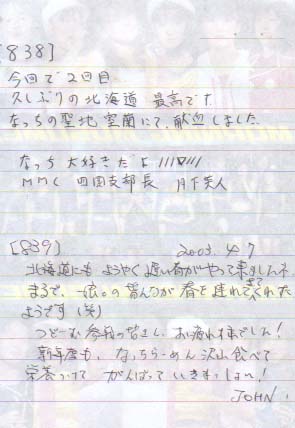 [838]
今回で2回目
久しぶりの北海道 最高です
なっちの聖地 室蘭にて、献血しました
なっち 大好きだよ ////▽////
MMC 四国支部長 月下美人
[839] 2003. 4. 7
北海道にも ようやく遅い春がやって来ましたネ
まるで、一依。の皆んなが 春を連れてきてくれた
ようです (笑)
つどーむ参戦の皆さん、お疲れ様でした!
新年度も、なっちらーめん沢山食べて
栄養つけて がんばっていきまっしょい!
JOHN